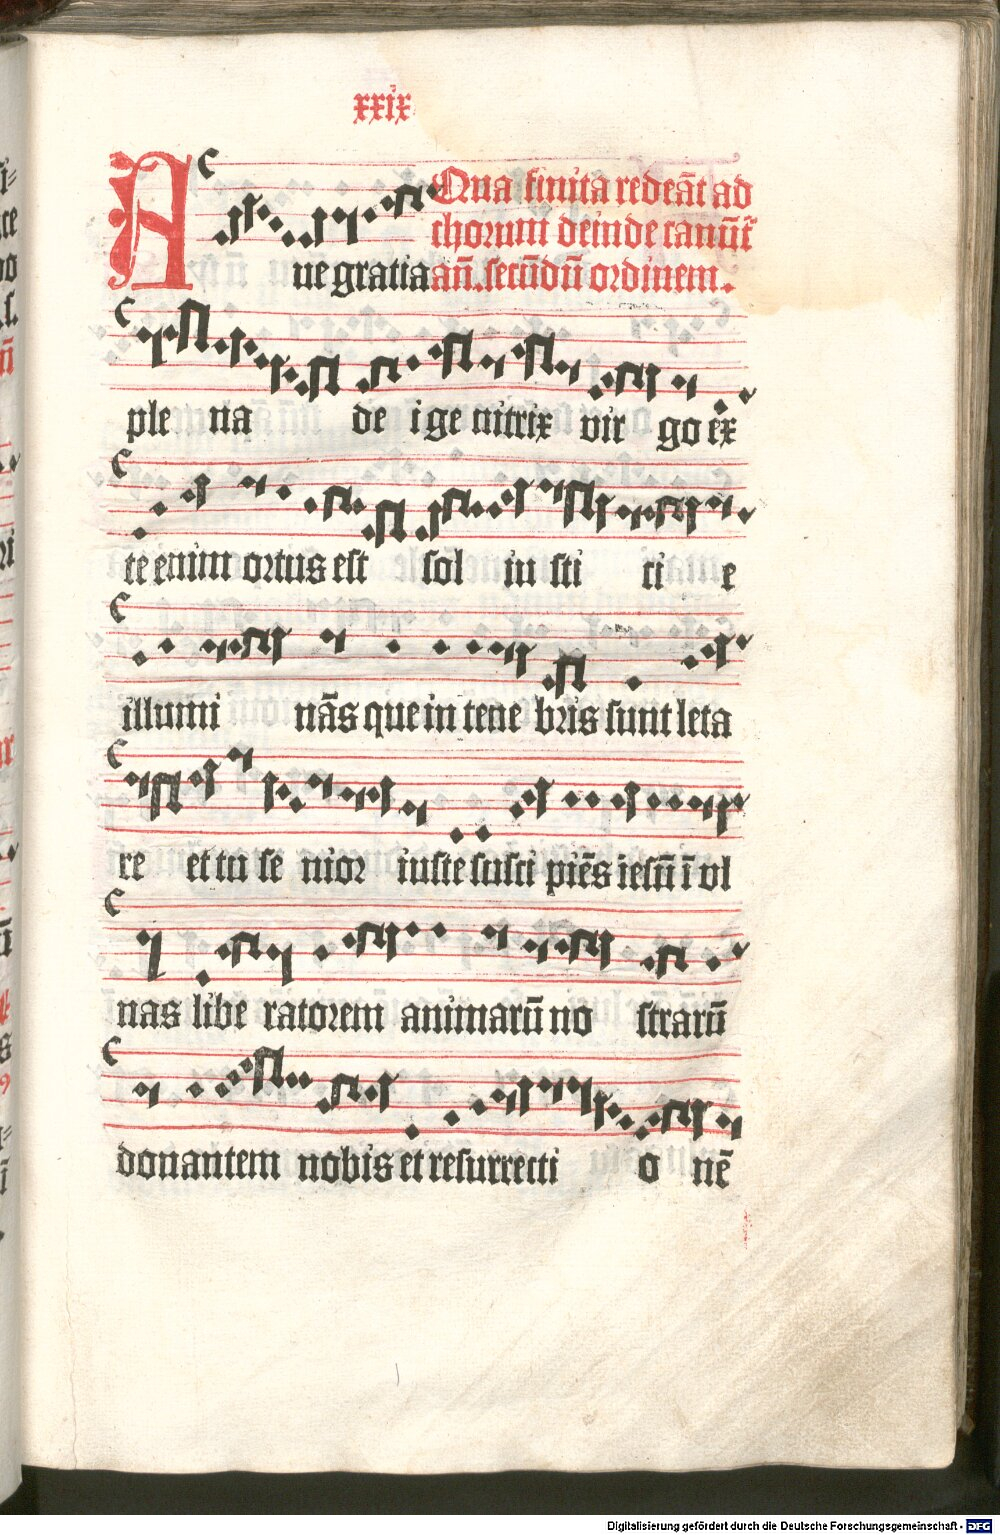 xxix
Qua finita redeāt ad
chorum deinde canūt̄
A ue gratia añ. secūdū ordinem.
ple na de i ge nitrix vir go ex
te enim ortus est sol iu sti ci e
illumi nās que in tene bris sunt leta
re et tu se nior iuste susci piēs iesū ī vl
nas libe ratorem animarū no strarū
donantem nobis et resurrecti o nē
Digitalisierung gefördert durch die Deutsche Forschungsgemeinschaft - DFG